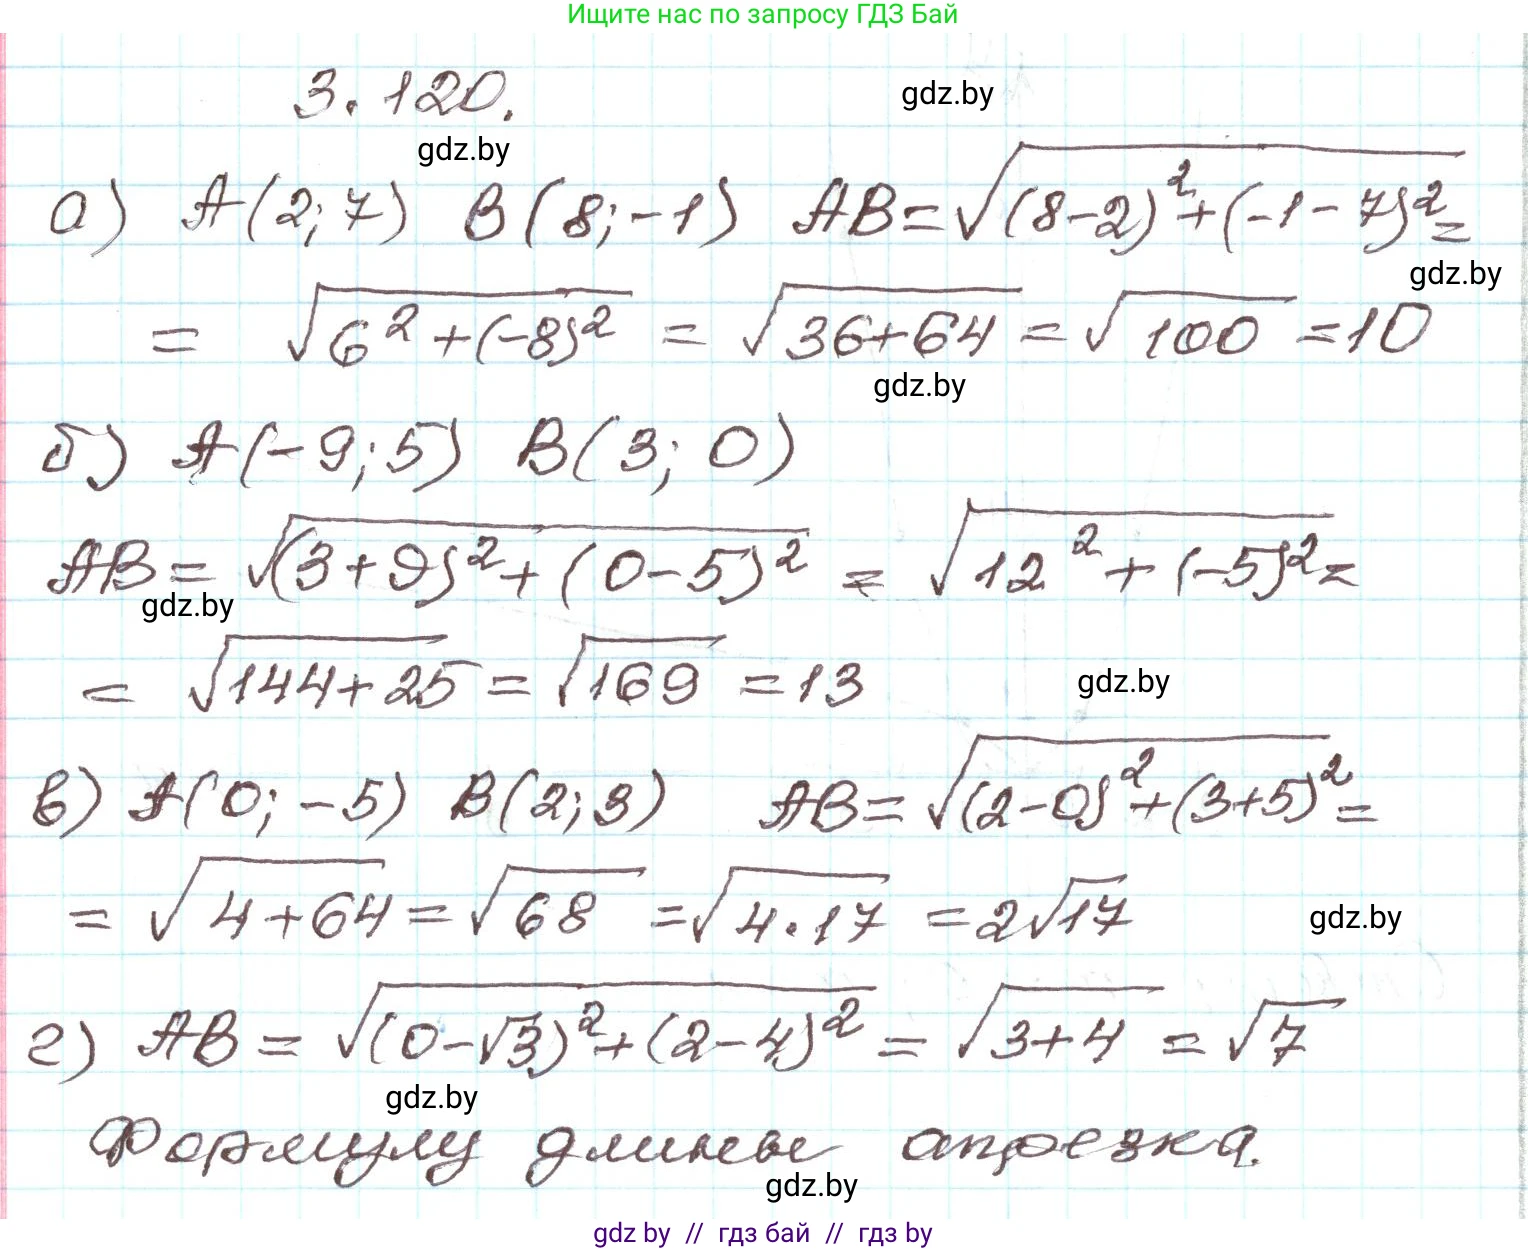 Ищите нас по запросу ГДЗ Бай
3.120.
gdz.by
gdz.by
а) A(2;7) B(8;-1) AB=√((8-2)²+(-1-7)²)=
gdz.by
= √(6²+(-8)²) = √(36+64) = √100 =10
gdz.by
б) A(-9;5) B(3;0)
AB= √((3+9)²+(0-5)²) = √(12²+(-5)²)=
gdz.by
= √(144+25) = √169 =13
gdz.by
в) A(0;-5) B(2;3) AB= √((2-0)²+(3+5)²)=
= √(4+64) = √68 = √(4·17) = 2√17
gdz.by
г) AB = √((0-√3)²+(2-4)²) = √(3+4) = √7
gdz.by
Формулу длины отрезка.
gdz.by
gdz by // гдз бай // гдз by